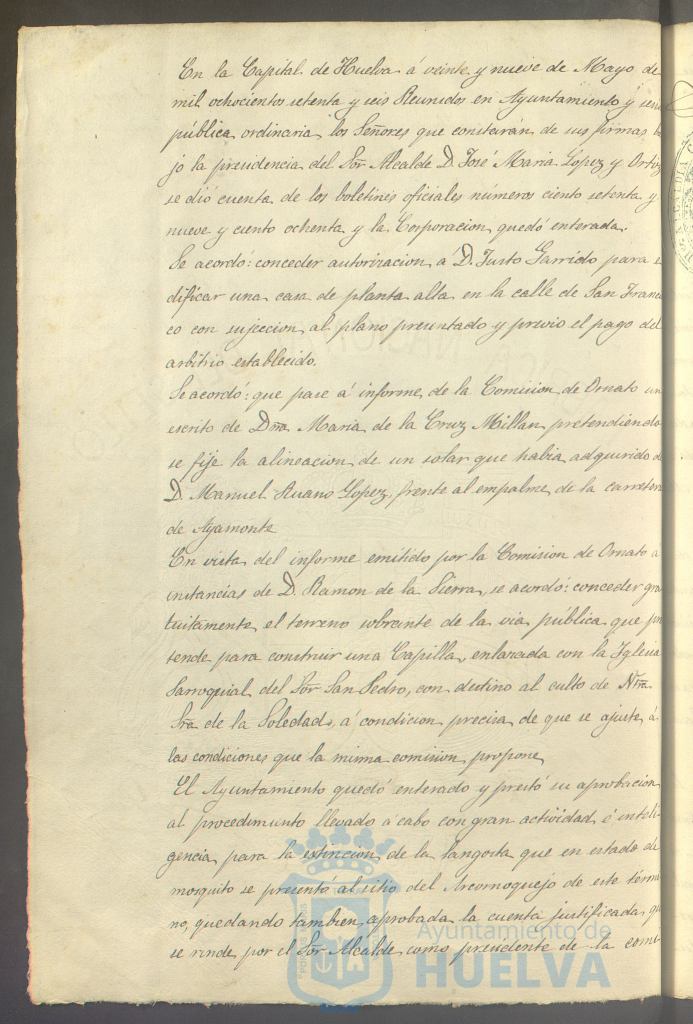 En la Capital de Huelva á veinte y nueve de Mayo de
mil ochocientos setenta y seis Reunidos en Ayuntamiento y
pública ordinaria los Señores que constarán de sus firmas
jo la presidencia del Sor Alcalde D. José Maria Lopez y Ortiz
se dió cuenta de los boletines oficiales números ciento setenta y
nueve y ciento ochenta y la Corporacion quedó enterada.
Se acordó: conceder autorizacion á D. Justo Garrido para e
dificar una casa de planta alta en la calle de San Francis
co con sujecion al plano presentado y previo el pago del
arbitrio establecido.
Se acordó: que pase á informe de la Comision de Ornato un
escrito de Dña Maria de la Cruz Millan pretendiendo
se fije la alineacion de un solar que habia adquirido
D. Manuel Ruano Lopez, frente al empalme de la carretera
de Ayamonte
En vista del informe emitido por la Comision de Ornato á
instancias de D. Ramon de la Sierra, se acordó: conceder gra
tuitamente el terreno sobrante de la via pública que pre
tende para construir una Capilla, enlazada con la Iglesia
Parroquial del Sor San Pedro, con destino al culto de Ntra
Sra de la Soledad, á condicion precisa de que se ajuste á
las condiciones que la misma comision propone
El Ayuntamiento quedó enterado y prestó su aprobacion
al procedimiento llevado á cabo con gran actividad é inteli
gencia para la extincion de la langosta que en estado de
mosquito se presentó al sitio del de este térmi
no, quedando tambien aprobada la cuenta justificada que
se rinde por el Sor Alcalde como presidente de la comi
Ayuntamiento de
HUELVA